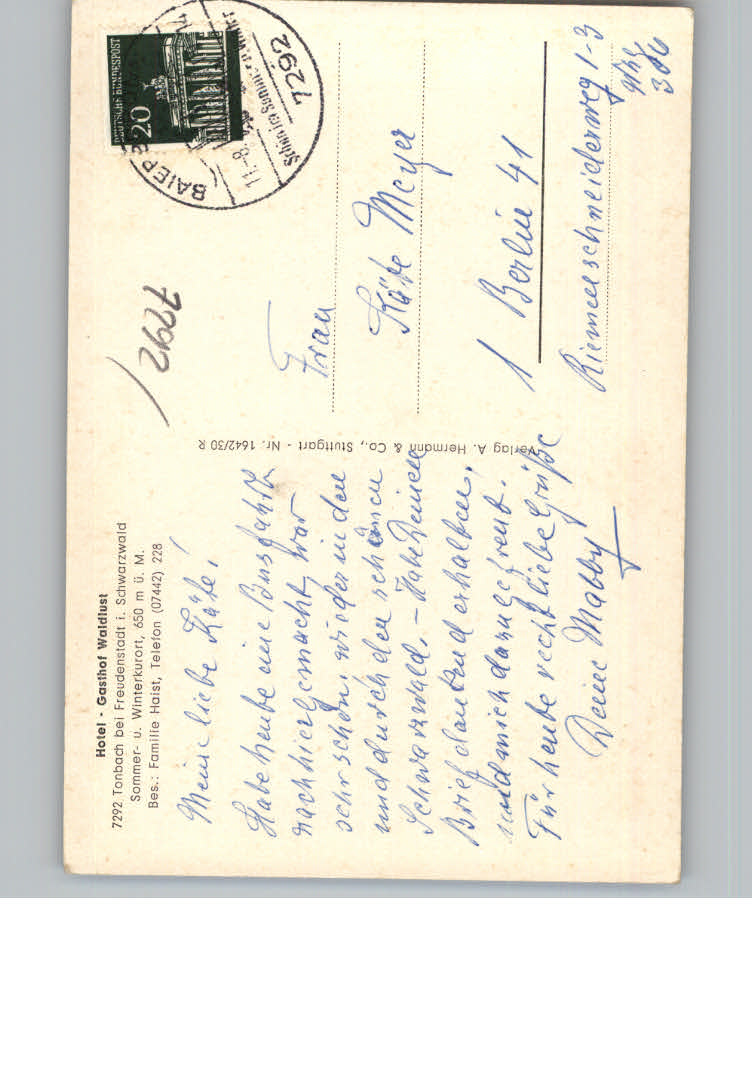 Hotel - Gasthof Waldlust
7292 Tonbach bei Freudenstadt i. Schwarzwald
Sommer- u. Winterkurort, 650 m ü. M.
Bes.: Familie Haist, Telefon (07442) 228
Meine liebe Käte!
Habe heute eine Busfahrt
nach hier gemacht, war
sehr schön, wieder in den
und durch den schönen
Schwarzwald. - Habe Deinen
Brief dankend erhalten,
und mich darauf gefreut.
Für heute recht liebe Grüße
Deine Mabby
Verlag A. Hermann & Co., Stuttgart - Nr. 1642/30 R
7292
DEUTSCHE BUNDESPOST
20
BAIER
11.-8.
7292
Frau
Käte Meyer
1 Berlin 41
Riemenschneiderweg 1-3
306